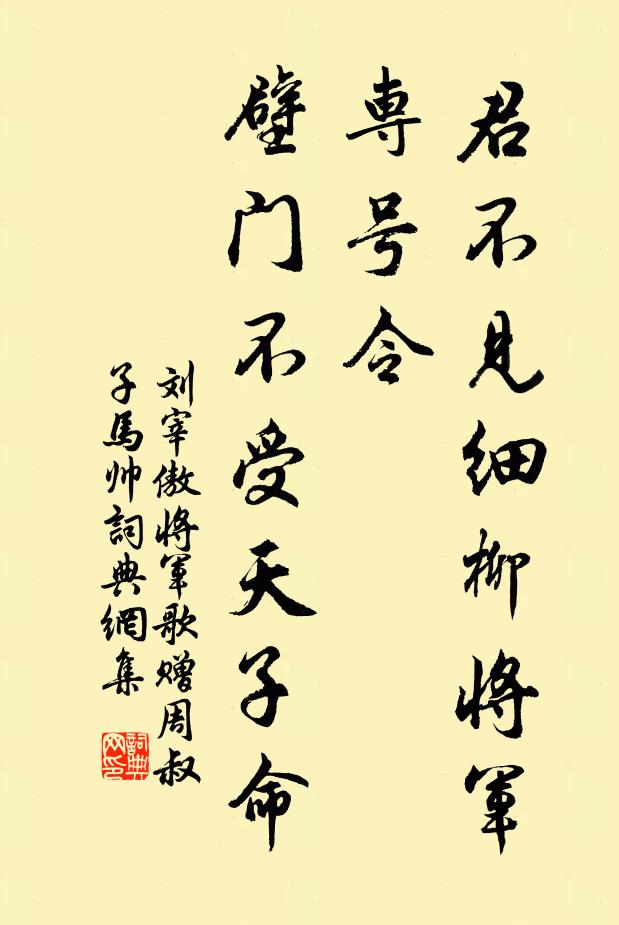 君不見细柳將軍
専号令
壁门不受天子命
刘宰傲將軍歌赠周叔
子馬帅詞典網集
詞典
网印